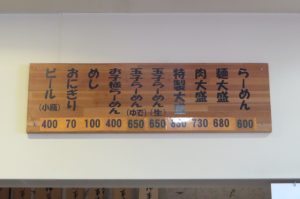 らーめん 600
麺大盛 680
肉大盛 730
特製大盛 830
玉子らーめん(生) 650
玉子らーめん(ゆで) 650
お子様らーめん 400
めし 100
おにぎり 70
ビール(小瓶) 400